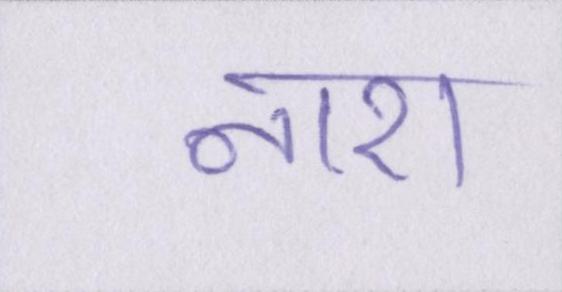 नाश